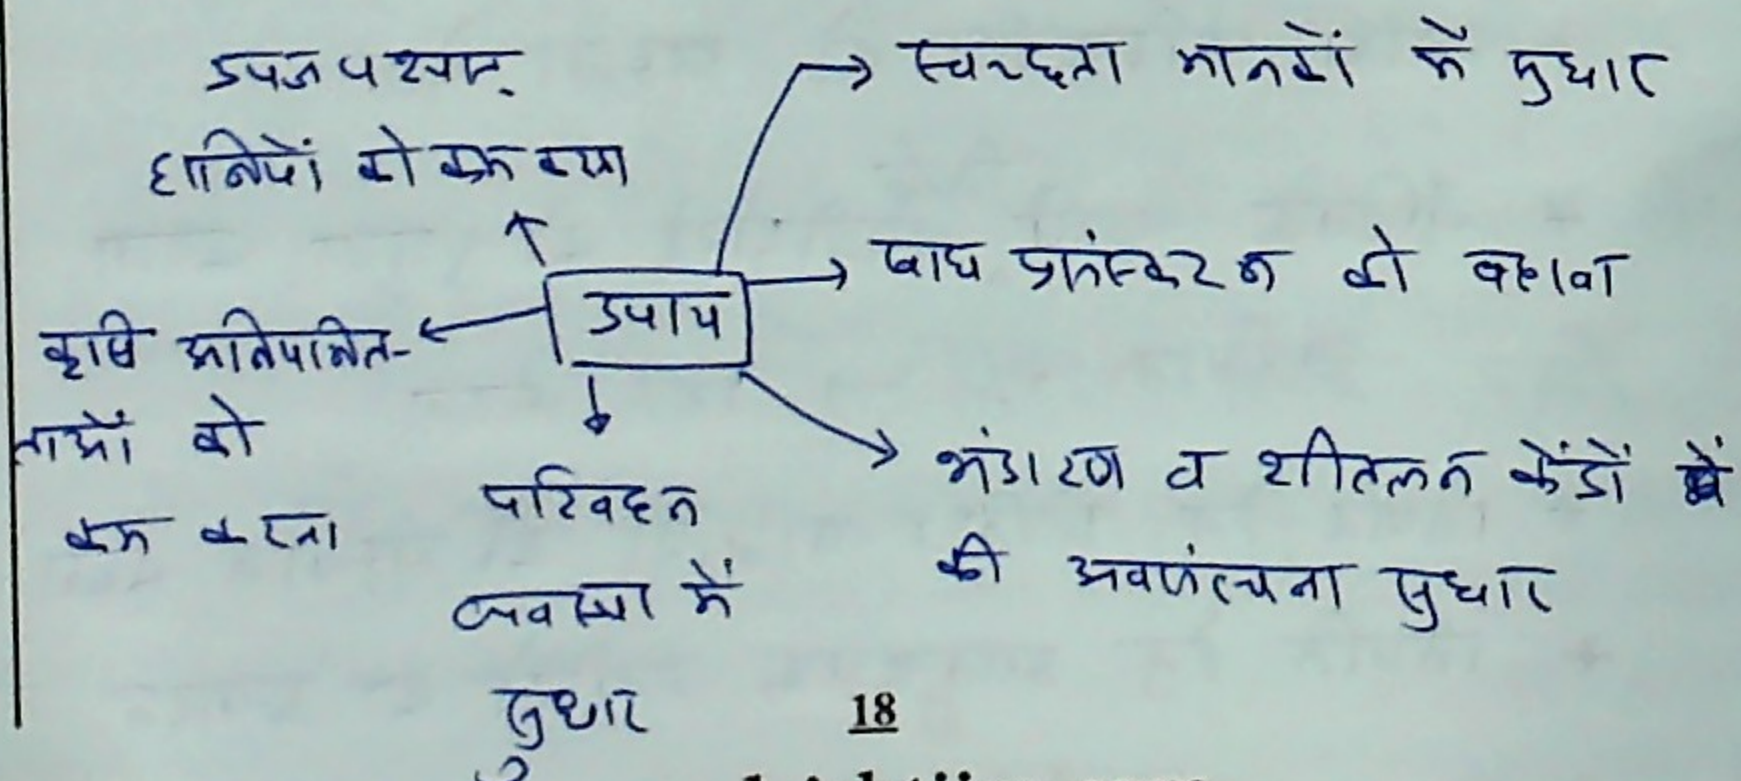 उपज पश्चात्
हानियों को कम करना
स्वच्छता मानकों में सुधार
खाद्य प्रसंस्करण को बढ़ावा
उपाय
कृषि अनियमित-
ताओं को
कम करना
परिवहन
व्यवस्था में
सुधार
भंडारण व शीतलन केंद्रों
की अवसंरचना सुधार
18